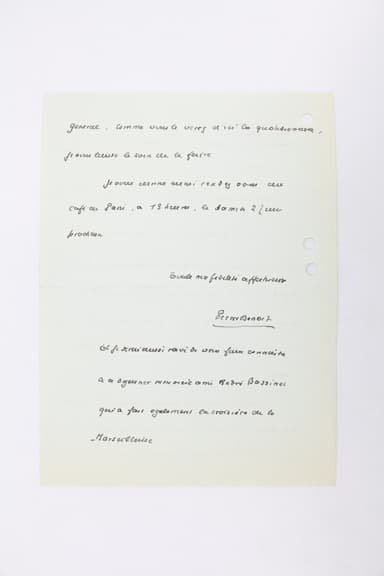 general. Comme vous le verrez d'ici les quotidiennes,
je vous laisse le soin de la faire
Je vous donne aussi rendez vous au
café de Paris, à 13 heures, le samedi 2 juin
prochain
Toute ma fidélité affectueuse
Pierre Benoit
et je serai aussi ravi de vous faire connaitre
à ce déjeuner mon ami André Bassinet
qui a fait également la croisière de la
Marseillaise